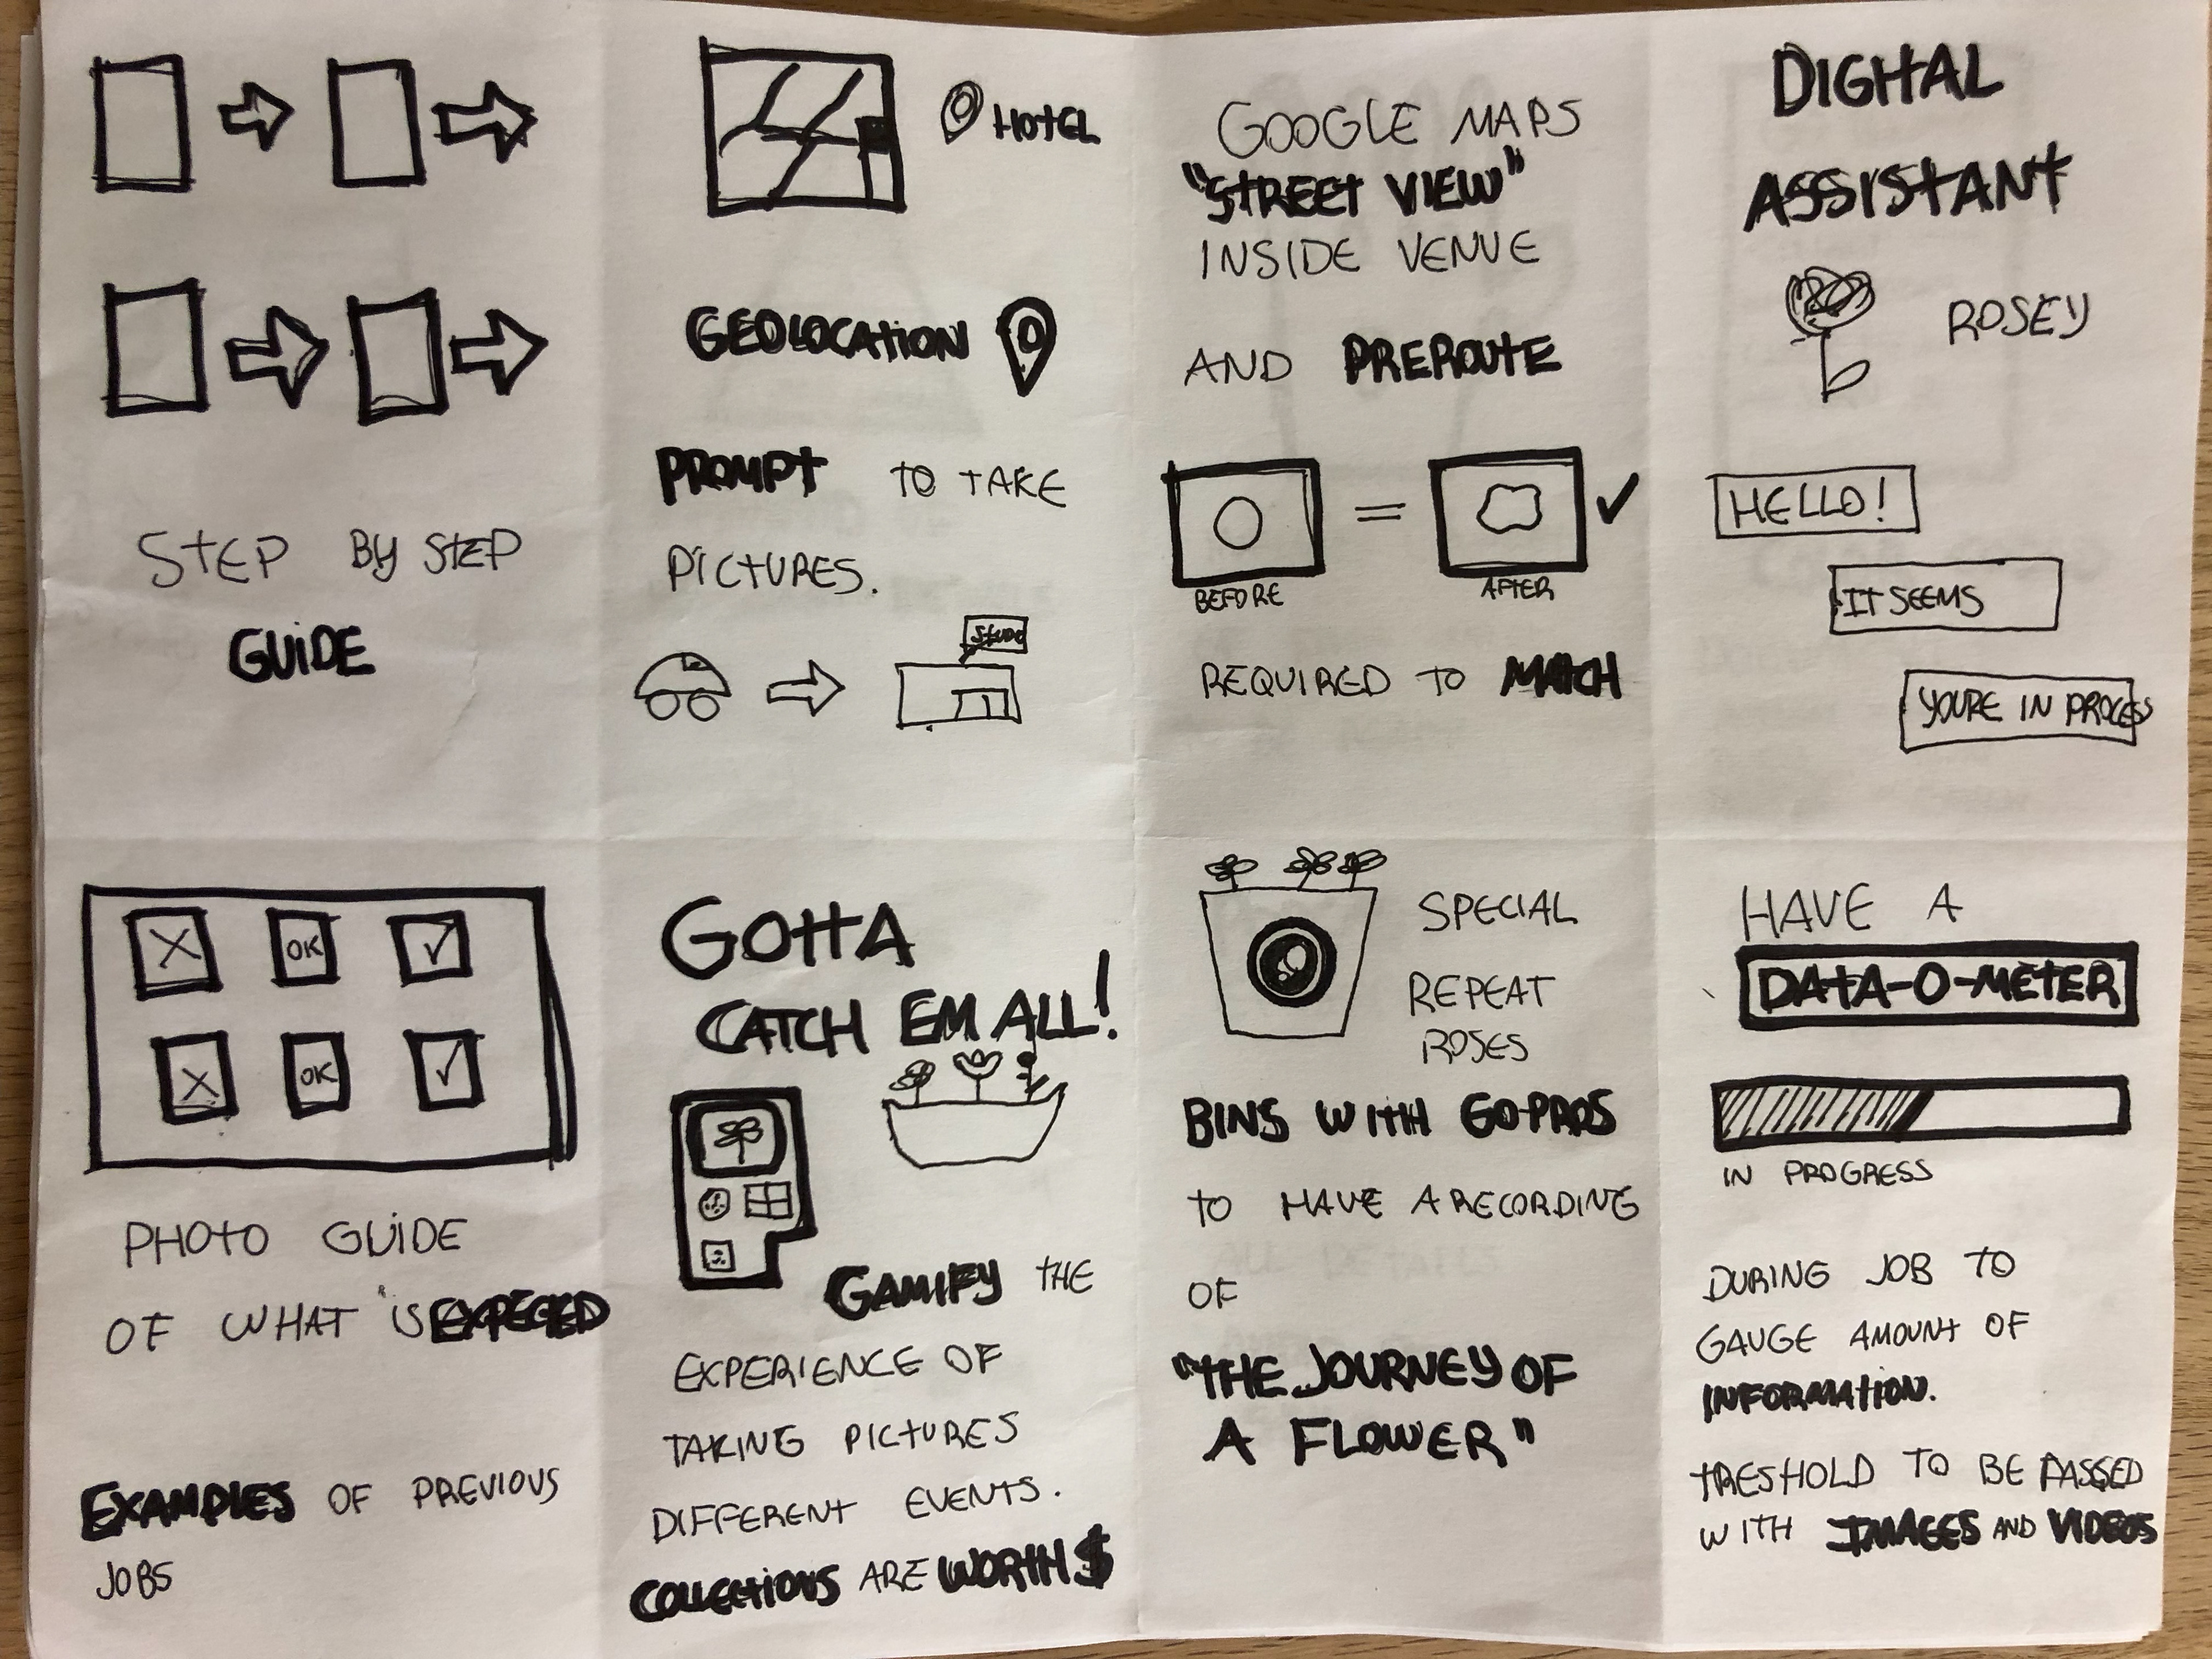 STEP BY STEP
GUIDE
HOTEL
GEOLOCATION
PROMPT TO TAKE
PICTURES.
GOOGLE MAPS
"STREET VIEW"
INSIDE VENUE
AND PREROUTE
=
BEFORE
AFTER
REQUIRED TO MATCH
DIGITAL
ASSISTANT
ROSEY
HELLO!
IT SEEMS
YOURE IN PROCESS
X OK ✓
X OK ✓
PHOTO GUIDE
OF WHAT IS EXPECTED
EXAMPLES OF PREVIOUS
JOBS
GOTTA
CATCH EM ALL!
GAMIFY THE
EXPERIENCE OF
TAKING PICTURES
DIFFERENT EVENTS.
COLLECTIONS ARE WORTH $
SPECIAL
REPEAT
ROSES
BINS WITH GO-PROS
TO HAVE A RECORDING
OF
"THE JOURNEY OF
A FLOWER"
HAVE A
DATA-O-METER
IN PROGRESS
DURING JOB TO
GAUGE AMOUNT OF
INFORMATION.
TRESHOLD TO BE PASSED
WITH IMAGES AND VIDEOS